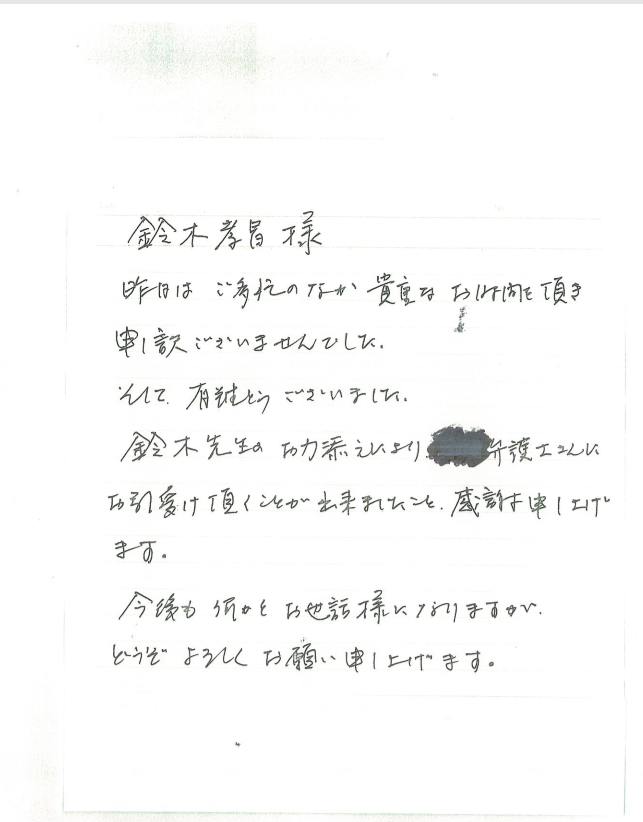 鈴木孝昌 様
昨日は ご多忙のなか 貴重な お時間を頂き
申し訳ございませんでした。
そして、有難とうございました。
鈴木先生の お力添えにより 弁護士さんに
お引受け頂くことが出来ましたこと、感謝申し上げ
ます。
今後も 何かと お世話様になりますが、
どうぞ よろしく お願い申し上げます。